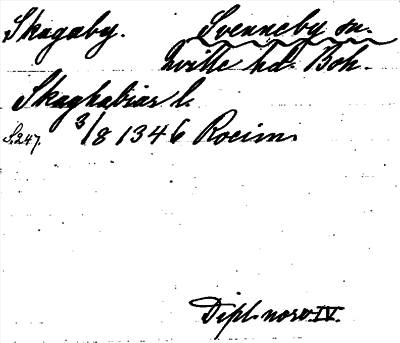 Skagaby. Svenneby sn.
Qville hd. Boh.
Skaghabiar l.
S.247. 3/8 1346 Rocinn
Dipl. norv. IV.